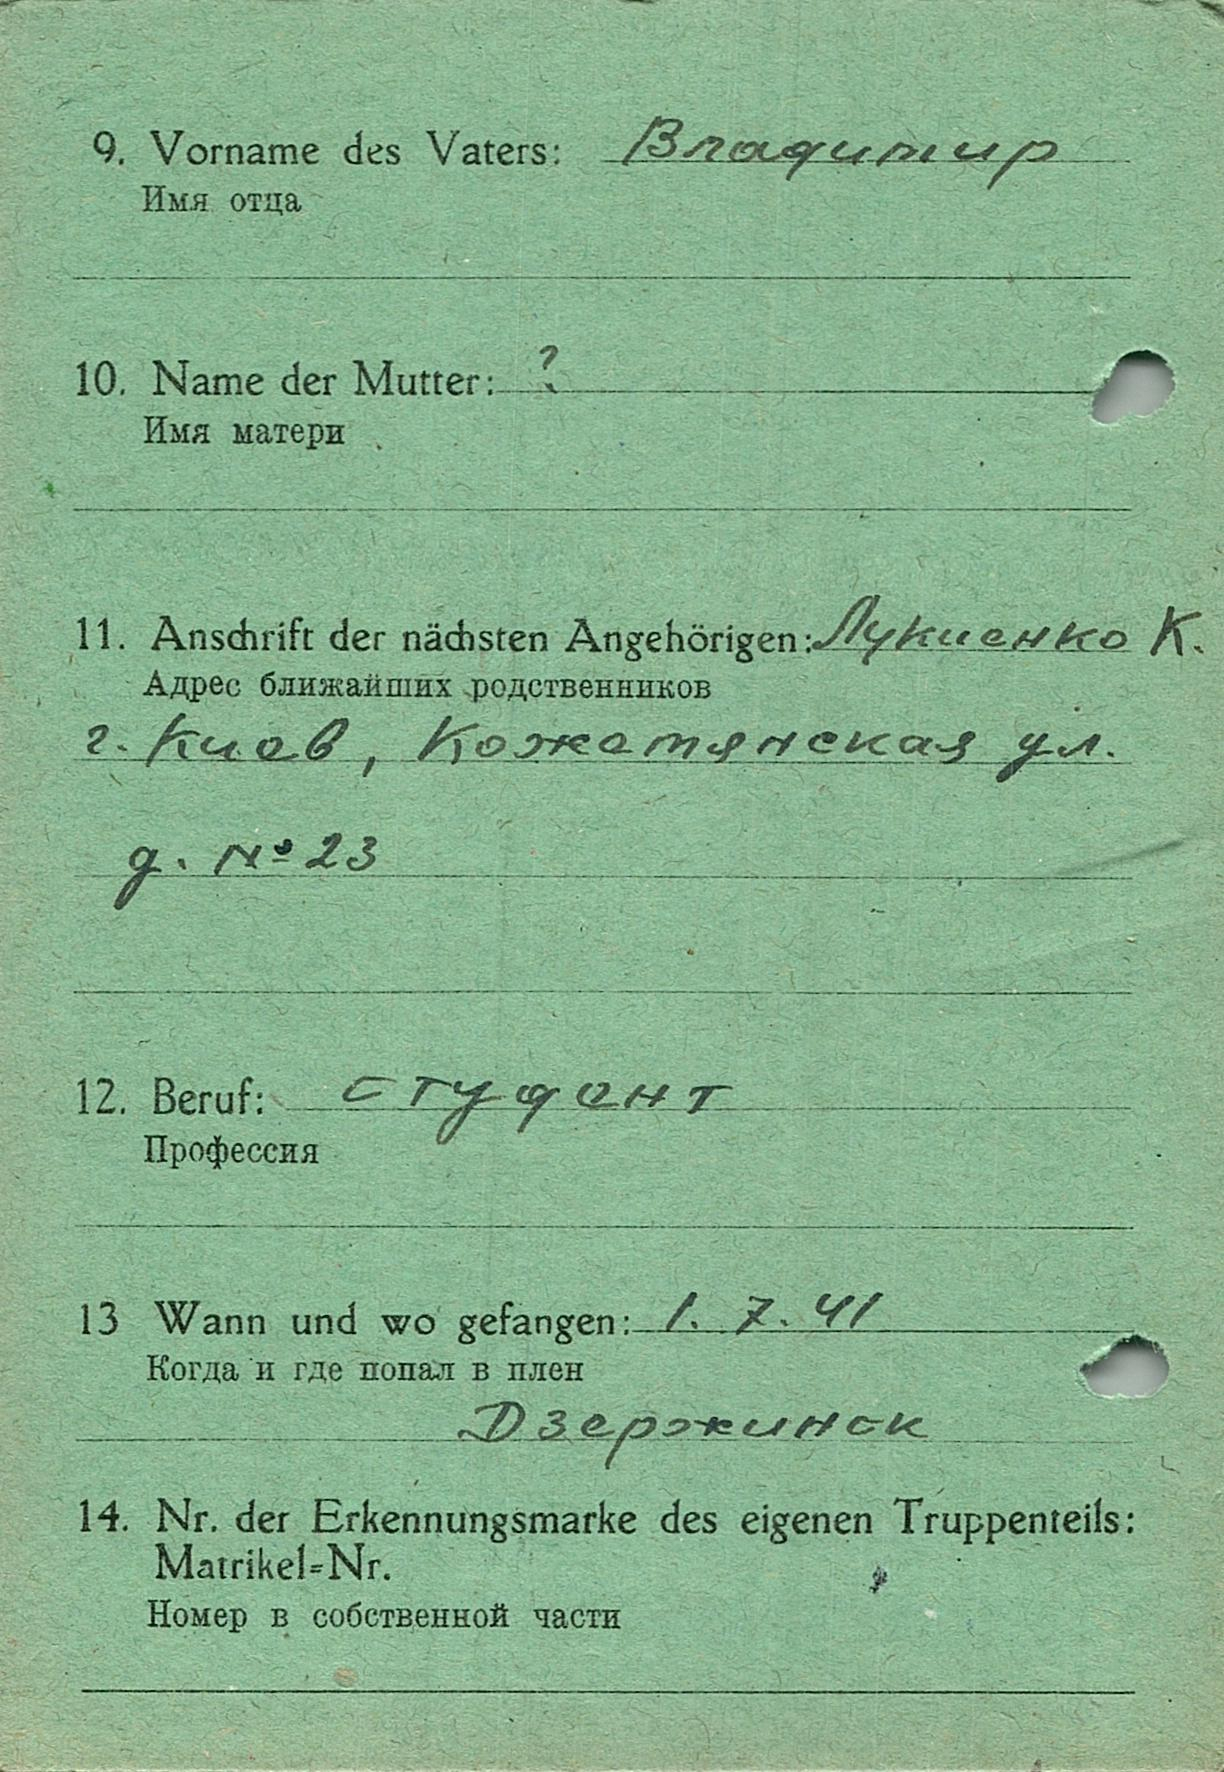 9. Vorname des Vaters: Владимир
Имя отца
10. Name der Mutter: ?
Имя матери
11. Anschrift der nächsten Angehörigen: Лукиенко К.
Адрес ближайших родственников
г. Киев, Кожемянская ул.
д. № 23
12. Beruf: студент
Профессия
13 Wann und wo gefangen: 1. 7. 41
Когда и где попал в плен
Дзержинск
14. Nr. der Erkennungsmarke des eigenen Truppenteils:
Matrikel-Nr.
Номер в собственной части